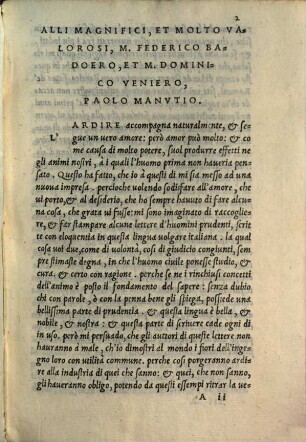 2
ALLI MAGNIFICI, ET MOLTO VA-
LOROSI, M. FEDERICO BA-
DOERO, ET M. DOMINI-
CO VENIERO,
PAOLO MANVTIO.
L' ARDIRE accompagna naturalmente, & se-
gue un uero amore: però amor può molto: & co
me causa di molto potere, suol produrre effetti ne
gli animi nostri, à i quali l'huomo prima non haueria pen-
sato. Questo ha fatto, che io à questi dì mi sia messo ad una
nuoua impresa. percioche volendo sodisfare all'amore, che
ui porto, & al desiderio, che ho sempre hauuto di fare alcu-
na cosa, che grata ui fusse: mi sono imaginato di raccoglie-
re, & far stampare alcune lettere d'huomini prudenti, scrit-
te con eloquentia in questa lingua volgare italiana. la qual
cosa uoi due, come di uolontà, cosi di giudicio congiunti, sem
pre stimaste degna, in che l'huomo ciuile ponesse studio, &
cura. & certo con ragione. perche se ne i rinchiusi concetti
dell'animo è posto il fondamento del sapere: senza dubio
chi con parole, ò con la penna bene gli spiega, possiede una
bellissima parte di prudentia. & questa lingua è bella, &
nobile, & nostra: & questa parte di scriuere cade ogni dì
in uso. però mi persuado, che gli autori di queste lettere non
hauranno à male, ch'io dimostri al mondo i fiori dell'inge-
gno loro con utilità commune. perche cosi porgeranno ardire
re alla industria di quei che sanno: & quei, che non sanno,
gli haueranno obligo, potendo da questi essempi ritrar la ue-
A ii